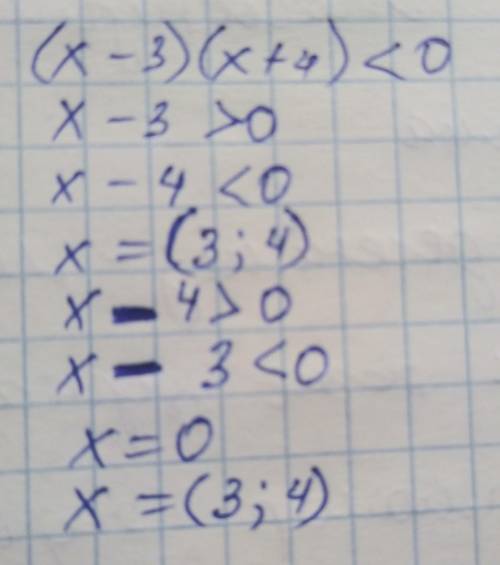 (x - 3)(x + 4) < 0
x - 3 > 0
x - 4 < 0
x = (3; 4)
x - 4 > 0
x - 3 < 0
x = 0
x = (3; 4)